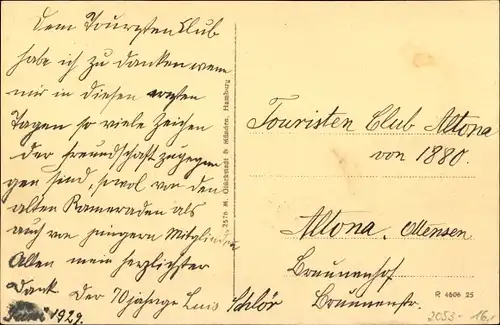 Dem Touristen Club
habe ich zu danken wenn
mir in diesen ersten
Tagen so viele Zeichen
der Freundschaft zugegan
gen sind, sowol von den
alten Kameraden als
auch von jüngern Mitgliedern
Allen mein herzlichster
Dank Der 70jährige Luis Schlör
1929.
2576 M. Glückstadt & Münden, Hamburg
Touristen Club Altona
von 1880.
Altona. Ottensen
Brunnenhof
Brunnenstr.
R 4606 25
2053-16.1